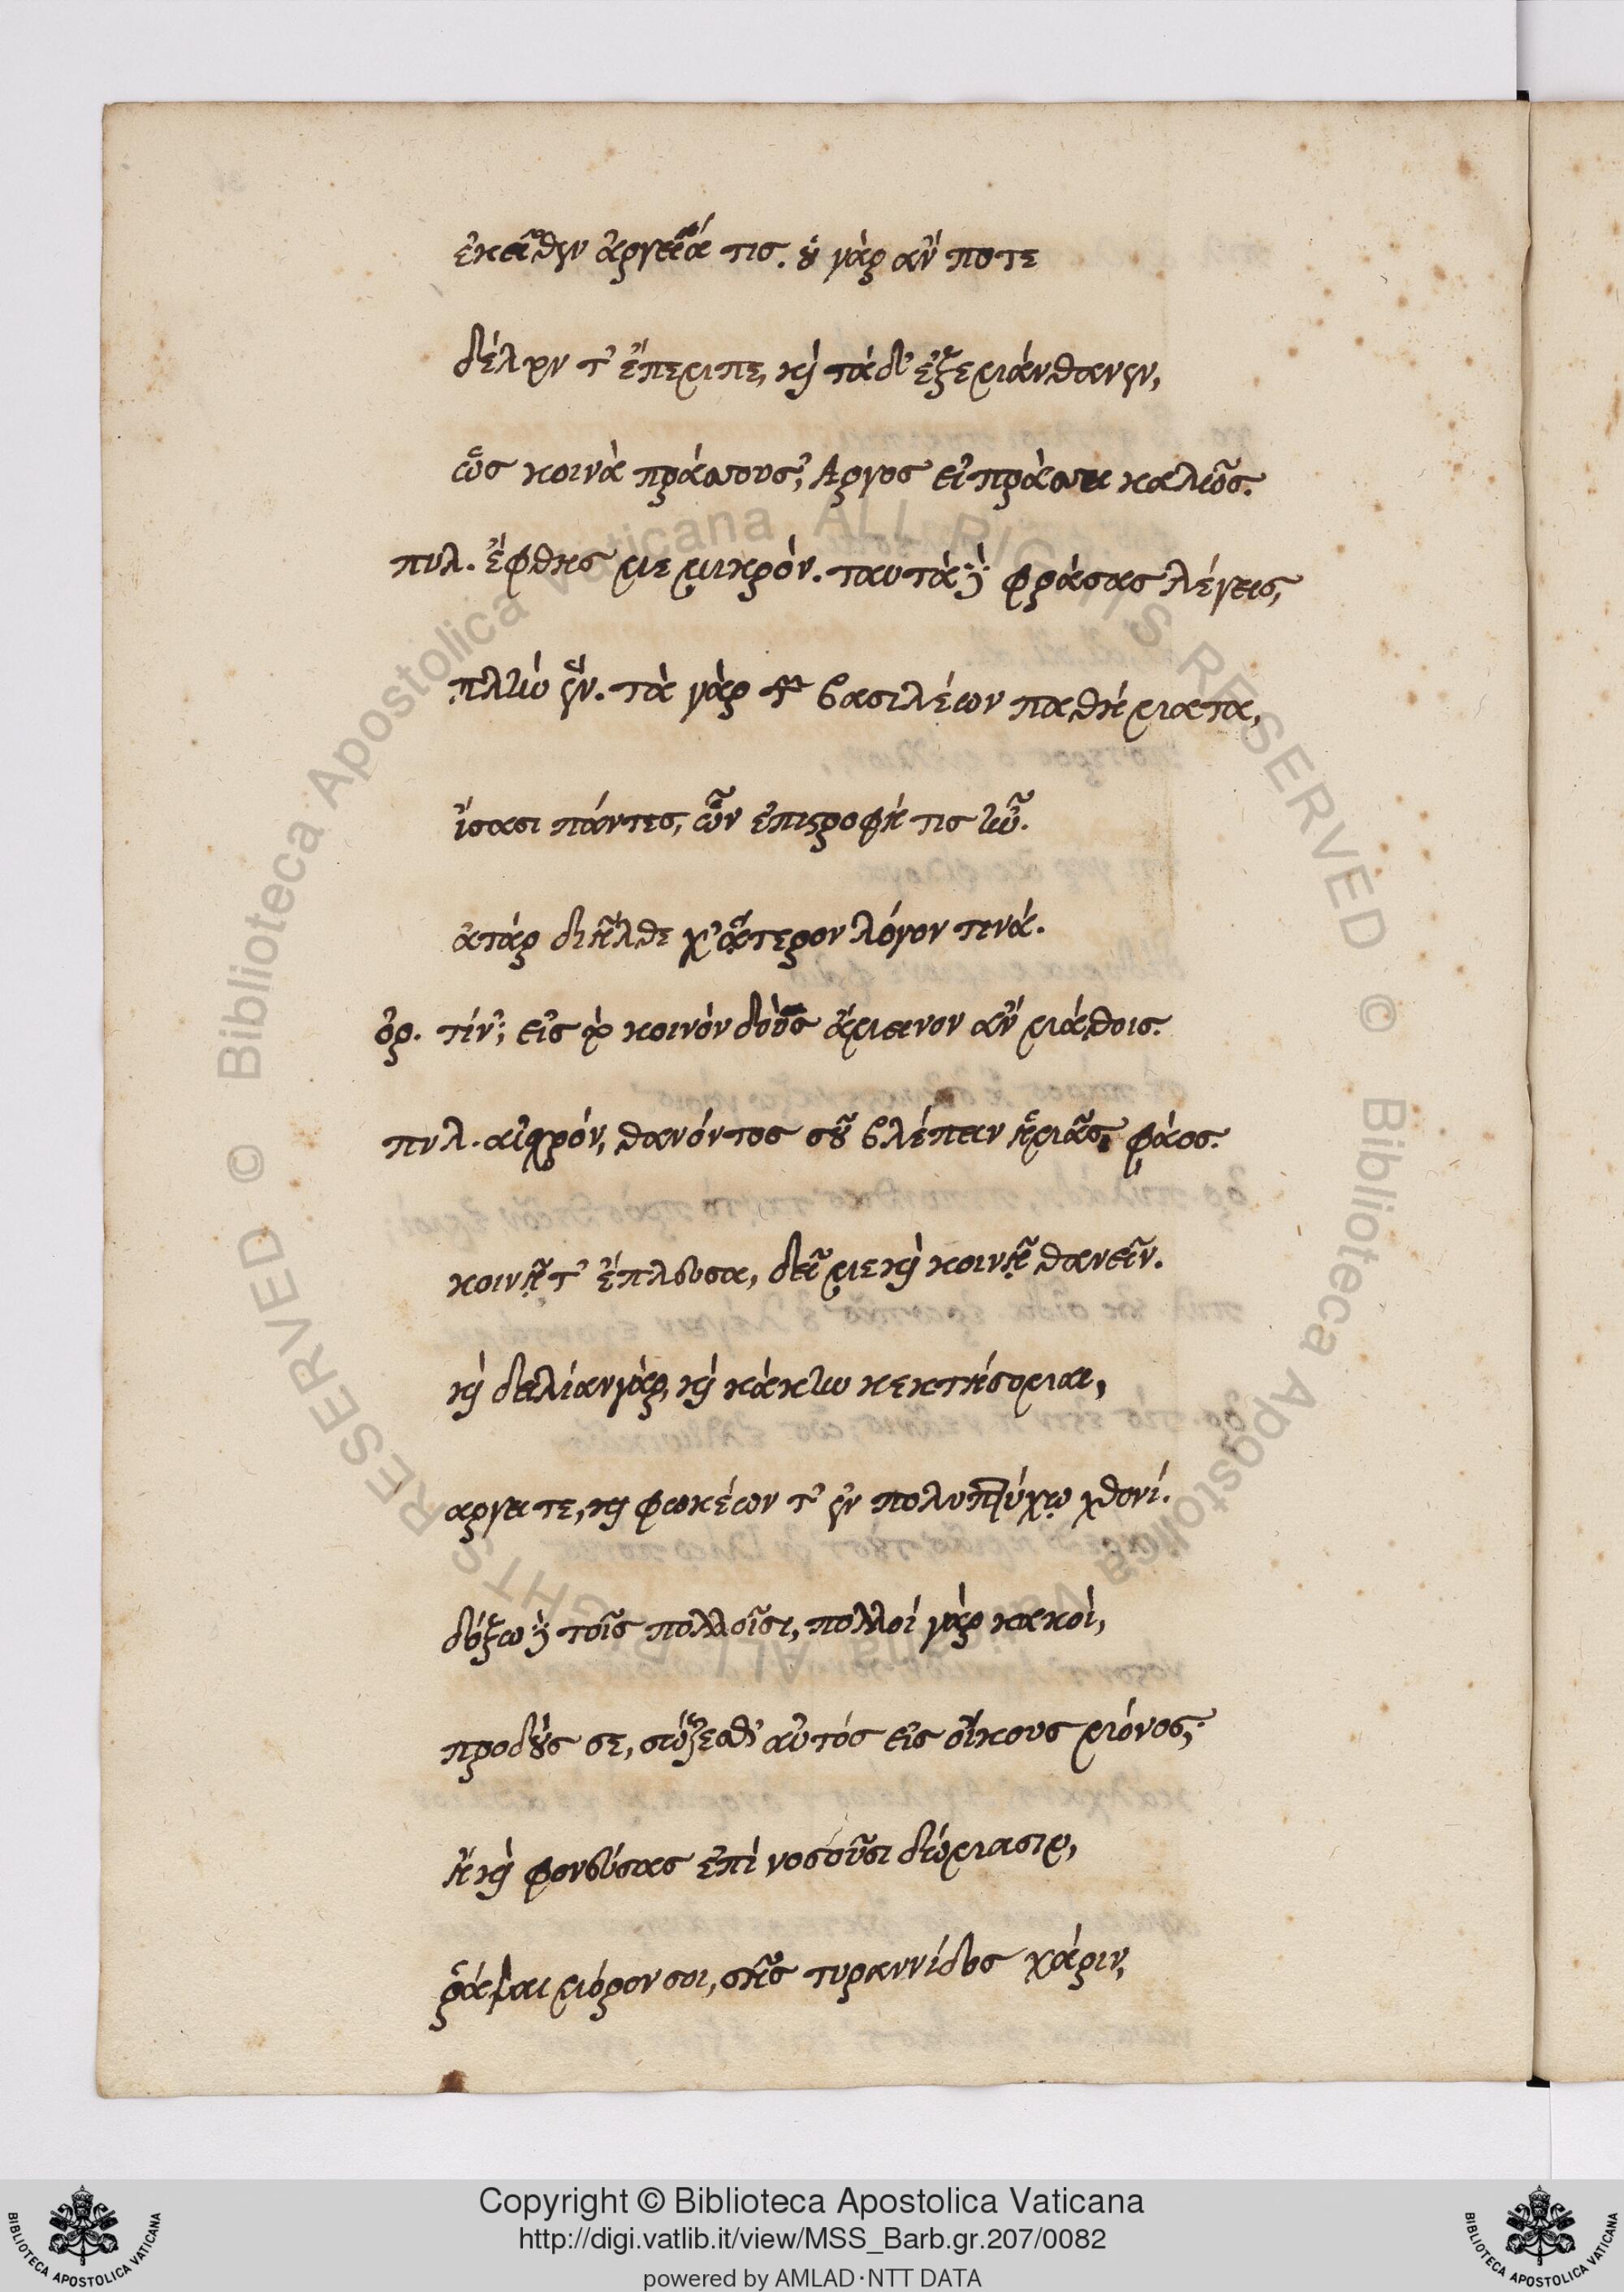 ἐκεῖθεν ἀργεία τις. οὐ γὰρ ἄν ποτε
δέλτον τ' ἔπεμπε, καὶ τάδ' ἐξεμάνθανεν,
ὡς κοινὰ πράσσουσ', Ἄργος εἰ πράσσει καλῶς.
πυλ. ἔφθης με μικρόν. ταυτὰ δὲ φράσας λέγεις,
πλὴν ἕν. τὰ γὰρ τῶν βασιλέων παθήματα,
ἴσασι πάντες, ὧν ἐπιστροφή τις ἦν.
ἀτὰρ διῆλθε χ' ἅτερον λόγον τινά.
ὀρ. τίν'; εἰς τὸ κοινὸν δοὺς ἄμεινον ἂν μάθοις.
πυλ. αἰσχρόν, θανόντος σοῦ βλέπειν ἡμᾶς φάος.
κοινῇ τ' ἔπλευσα, δεῖ με καὶ κοινῇ θανεῖν.
καὶ δειλίαν γὰρ, καὶ κάκην κεκτήσομαι,
αργει τε, καὶ φωκέων τ' ἐν πολυπτύχῳ χθονί.
δόξω δὲ τοῖς πολλοῖσι, πολλοί γὰρ κακοὶ,
προδοὺς σε, σώζεσθ' αὐτός εἰς οἴκους μόνος,
ἢ καὶ φονεύσας ἐπὶ νοσοῦσι δώμασιν,
ῥάψαι μόρον σοι, σῆς τυραννίδος χάριν,
Copyright © Biblioteca Apostolica Vaticana
http://digi.vatlib.it/view/MSS_Barb.gr.207/0082
powered by AMLAD·NTT DATA
BIBLIOTECA APOSTOLICA VATICANA
BIBLIOTECA APOSTOLICA VATICANA
© Biblioteca Apostolica Vaticana ALL RIGHTS RESERVED © Biblioteca Apostolica Vaticana ALL RIGHTS RESERVED